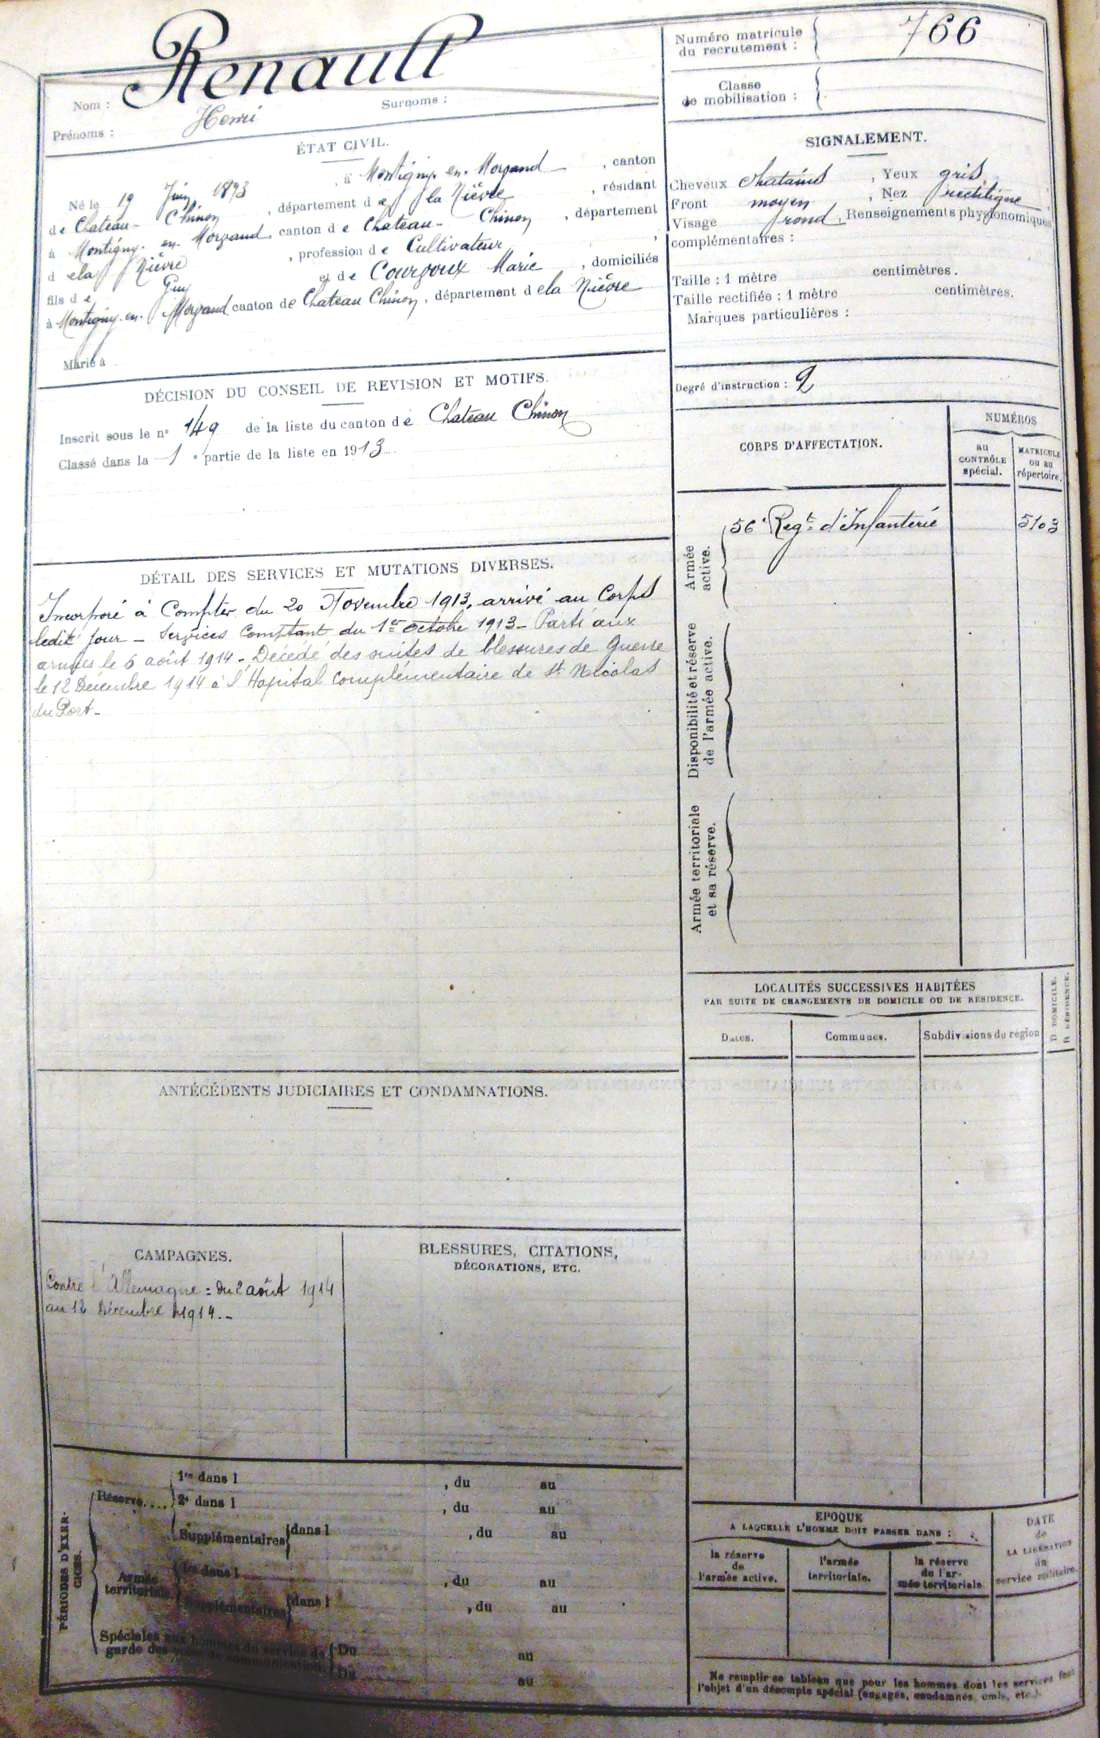 Renault
Nom :
Surnoms :
Prénoms :
Henri
ÉTAT CIVIL.
Né le 19 Juin 1893, à Montigny-en-Morvand, canton
de Chateau-Chinon, département de la Nièvre, résidant
à Montigny-en-Morvand canton de Chateau-Chinon, département
de la Nièvre, profession de Cultivateur,
fils de Guy et de Courgoux Marie, domiciliés
à Montigny-en-Morvand canton de Chateau Chinon, département de la Nièvre
Marié à
DÉCISION DU CONSEIL DE REVISION ET MOTIFS.
Inscrit sous le n° 149 de la liste du canton de Chateau Chinon
Classé dans la 1e partie de la liste en 1913
DÉTAIL DES SERVICES ET MUTATIONS DIVERSES.
Incorporé à Compter du 20 Novembre 1913, arrivé au Corps
ledit jour - Services Comptant du 1er octobre 1913 - Parti aux
armées le 6 août 1914 - Décédé des suites de blessures de Guerre
le 12 Décembre 1914 à l'Hopital Complémentaire de St Nicolas
du Port -
ANTÉCÉDENTS JUDICIAIRES ET CONDAMNATIONS.
CAMPAGNES.
Contre l'Allemagne : du 2 août 1914
au 12 Décembre 1914. -
BLESSURES, CITATIONS,
DÉCORATIONS, ETC.
PÉRIODES D'EXER-
CICES.
Réserve....
1re dans l , du au
2e dans l , du au
Supplémentaires dans l , du au
Armée
territoriale.
1re dans l , du au
Supplémentaires dans l , du au
Spéciales aux hommes du service de
garde des voies de communication.
Du au
Du au
Numéro matricule
du recrutement :
766
Classe
de mobilisation :
SIGNALEMENT.
Cheveux chatains, Yeux gris
Front moyen, Nez rectiligne
Visage rond, Renseignements physionomiques
complémentaires :
Taille : 1 mètre centimètres.
Taille rectifiée : 1 mètre centimètres.
Marques particulières :
Degré d'instruction : 2
CORPS D'AFFECTATION.
NUMÉROS
au
CONTRÔLE
spécial.
MATRICULE
ou au
répertoire.
Armée
active.
56e Regt d'Infanterie
5103
Disponibilité et réserve
de l'armée active.
Armée territoriale
et sa réserve.
LOCALITÉS SUCCESSIVES HABITÉES
PAR SUITE DE CHANGEMENTS DE DOMICILE OU DE RESIDENCE.
D DOMICILE.
R RÉSIDENCE.
Dates.
Communes.
Subdivisions du region
EPOQUE
A LAQUELLE L'HOMME DOIT PASSER DANS :
la réserve
de
l'armée active.
l'armée
territoriale.
la réserve
de l'ar-
mée territoriale
DATE
de
LA LIBÉRATION
du
service militaire.
Ne remplir ce tableau que pour les hommes dont les services font
l'objet d'un décompte spécial (engagés, condamnés, omis, etc.).